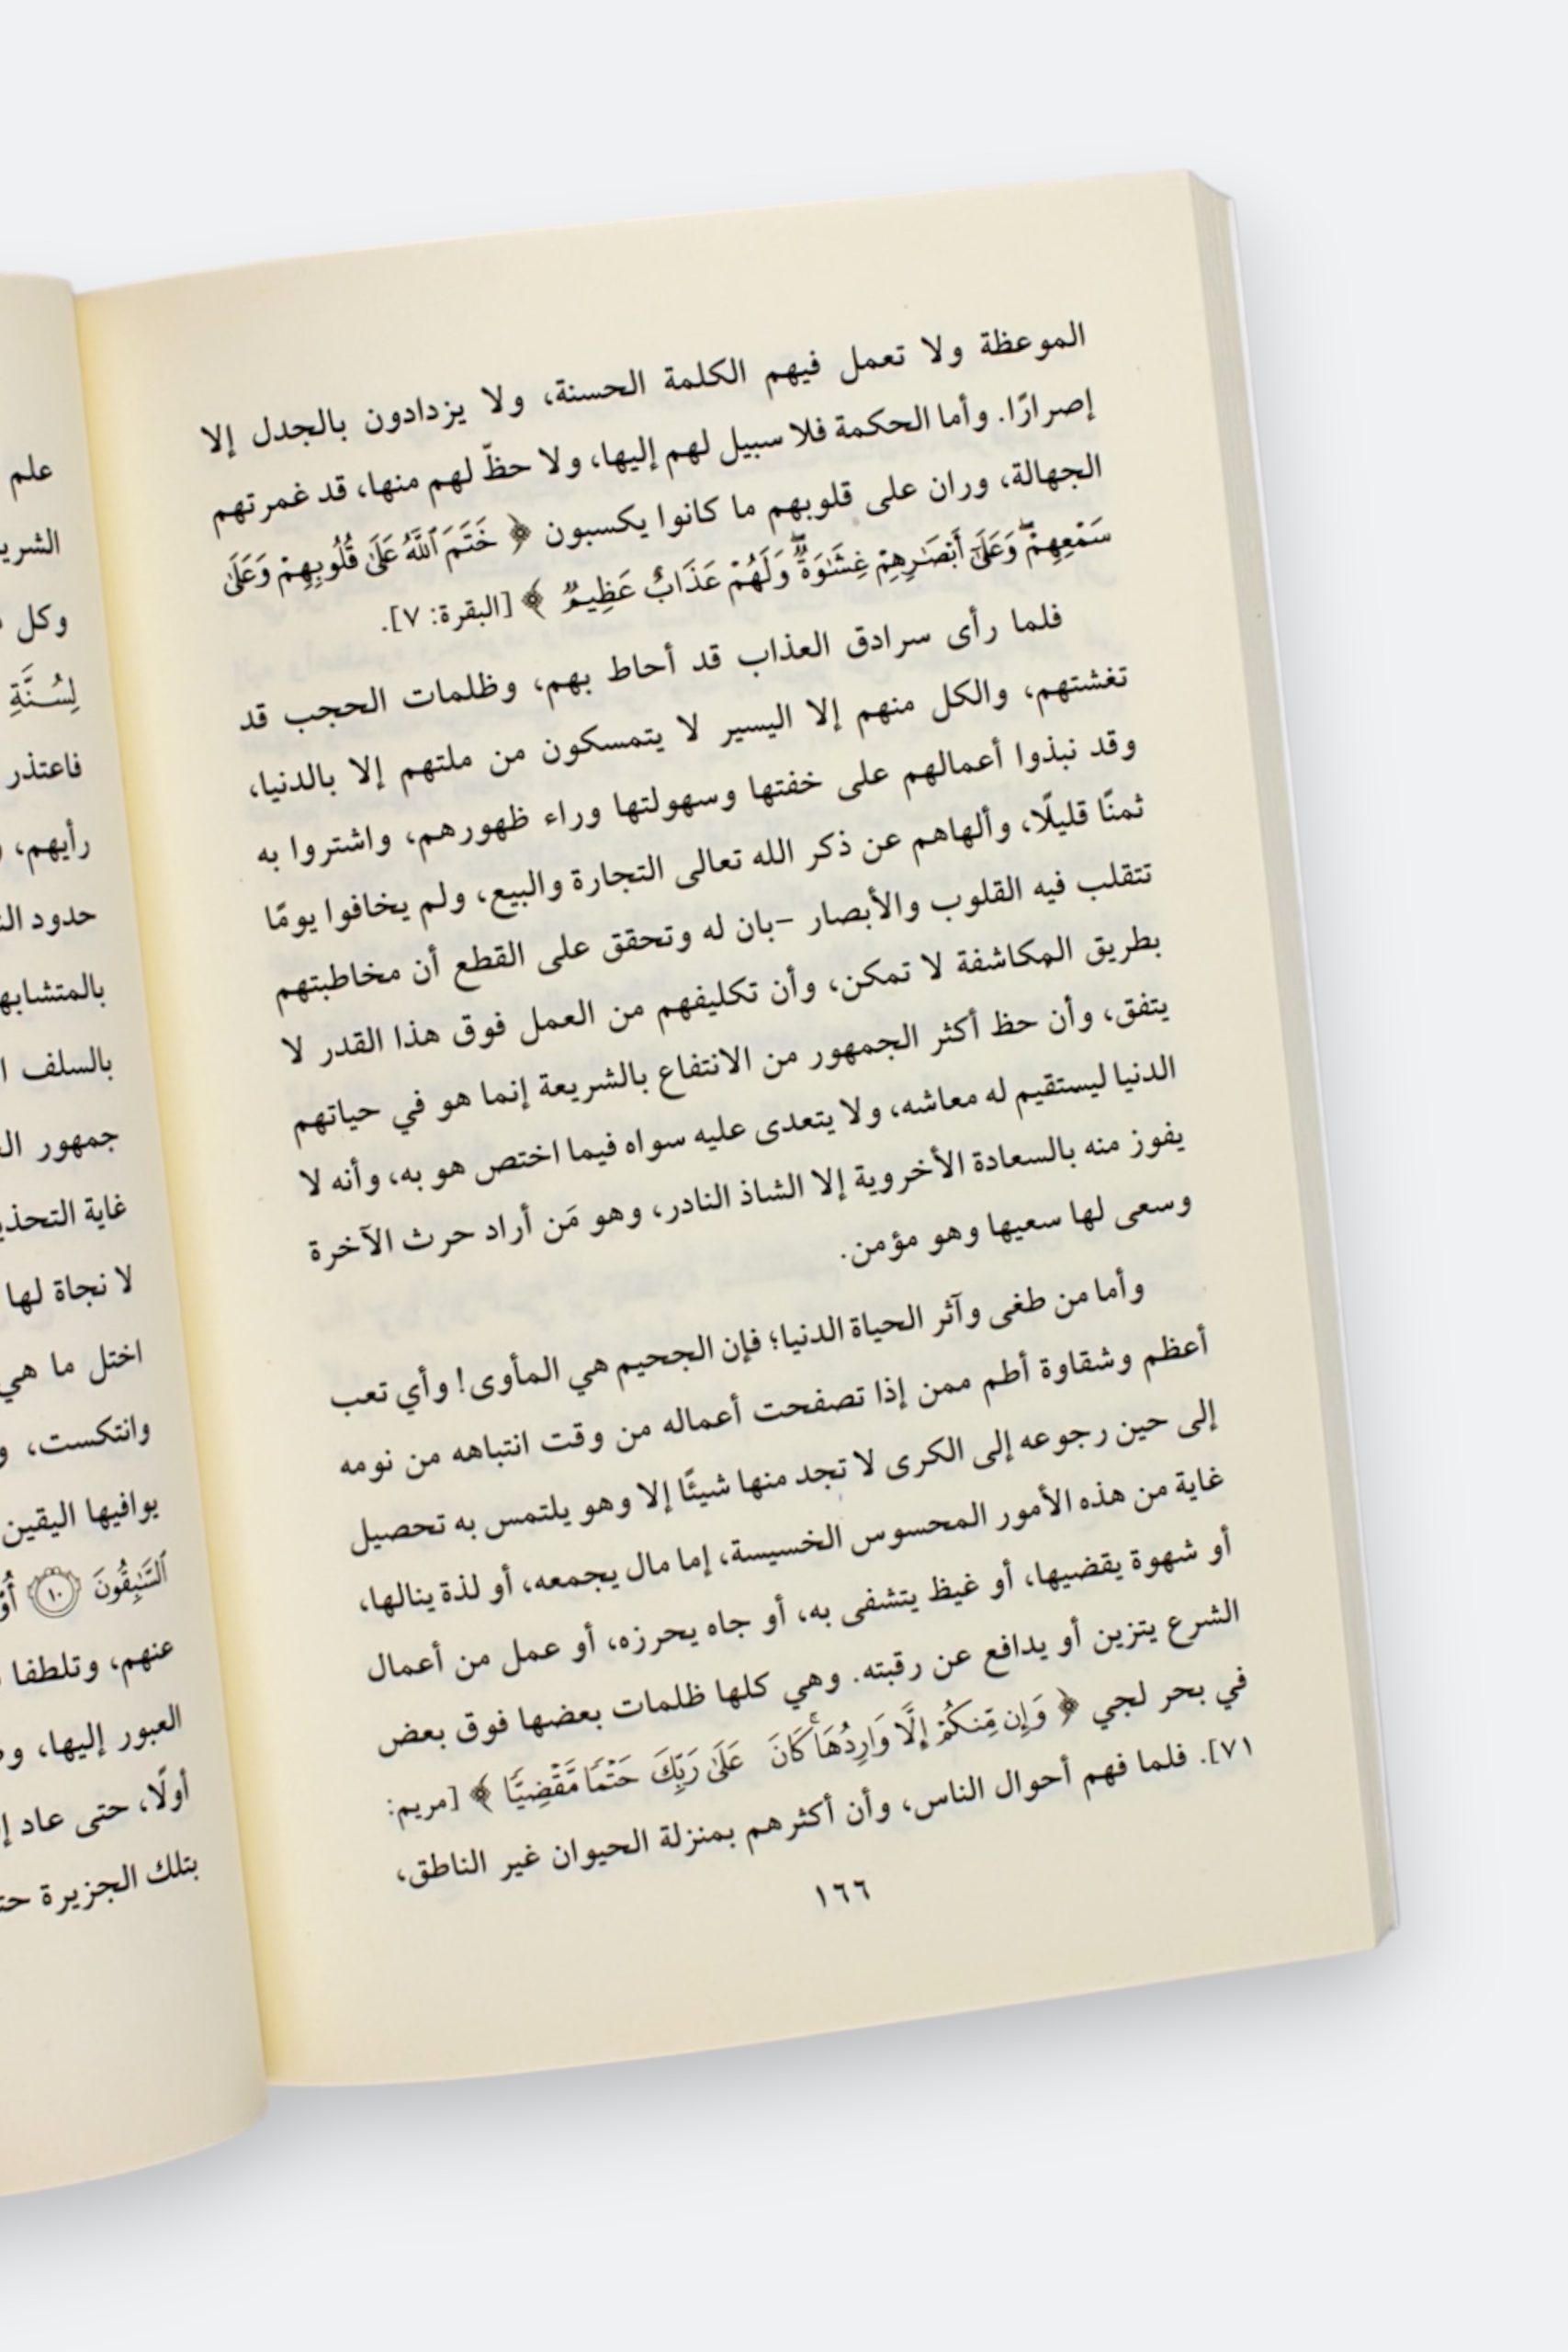 الموعظة ولا تعمل فيهم الكلمة الحسنة، ولا يزدادون بالجدل إلا
إصرارًا. وأما الحكمة فلا سبيل لهم إليها، ولا حظّ لهم منها، قد غمرتهم
الجهالة، وران على قلوبهم ما كانوا يكسبون ﴿ خَتَمَ ٱللَّهُ عَلَىٰ قُلُوبِهِمْ وَعَلَىٰ
سَمْعِهِمْۖ وَعَلَىٰٓ أَبْصَٰرِهِمْ غِشَٰوَةٌۖ وَلَهُمْ عَذَابٌ عَظِيمٌ ﴾ [البقرة: ٧].
فلما رأى سرادق العذاب قد أحاط بهم، وظلمات الحجب قد
تغشتهم، والكل منهم إلا اليسير لا يتمسكون من ملتهم إلا بالدنيا،
وقد نبذوا أعمالهم على خفتها وسهولتها وراء ظهورهم، واشتروا به
ثمنًا قليلًا، وألهاهم عن ذكر الله تعالى التجارة والبيع، ولم يخافوا يومًا
تتقلب فيه القلوب والأبصار –بان له وتحقق على القطع أن مخاطبتهم
بطريق المكاشفة لا تمكن، وأن تكليفهم من العمل فوق هذا القدر لا
يتفق، وأن حظ أكثر الجمهور من الانتفاع بالشريعة إنما هو في حياتهم
الدنيا ليستقيم له معاشه، ولا يتعدى عليه سواه فيما اختص هو به، وأنه لا
يفوز منه بالسعادة الأخروية إلا الشاذ النادر، وهو مَن أراد حرث الآخرة
وسعى لها سعيها وهو مؤمن.
وأما من طغى وآثر الحياة الدنيا؛ فإن الجحيم هي المأوى! وأي تعب
أعظم وشقاوة أطم ممن إذا تصفحت أعماله من وقت انتباهه من نومه
إلى حين رجوعه إلى الكرى لا تجد منها شيئًا إلا وهو يلتمس به تحصيل
غاية من هذه الأمور المحسوس الخسيسة، إما مال يجمعه، أو لذة ينالها،
أو شهوة يقضيها، أو غيظ يتشفى به، أو جاه يحرزه، أو عمل من أعمال
الشرع يتزين أو يدافع عن رقبته. وهي كلها ظلمات بعضها فوق بعض
في بحر لجي ﴿ وَإِن مِّنكُمْ إِلَّا وَارِدُهَاۚ كَانَ عَلَىٰ رَبِّكَ حَتْمًا مَّقْضِيًّا ﴾ [مريم:
٧١]. فلما فهم أحوال الناس، وأن أكثرهم بمنزلة الحيوان غير الناطق،
١٦٦
علم
وكل
لِسُنَّةِ
فاعتذر
رأيهم،
حدود
بالسلف
جمهور
لا نجاة لها
اختل ما هي
وانتكست،
يوافيها اليقين
ٱلسَّٰبِقُونَ ١٠
عنهم، وتلطفا
العبور إليها،
أولًا، حتى عاد
بتلك الجزيرة